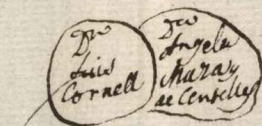 Dn
Luis
Cornell
Dña
Angela
Maza y
de Centelles